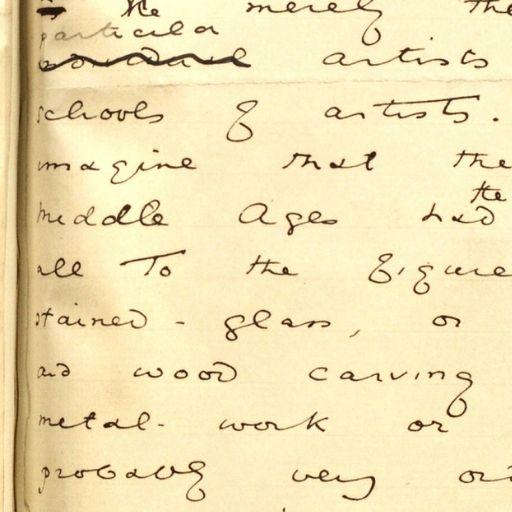 the merely the
particular
artists
schools of artists.
imagine that the
the
Middle Ages had
all to the figure
stained-glass, or
and wood carving
metal-work or
probably very